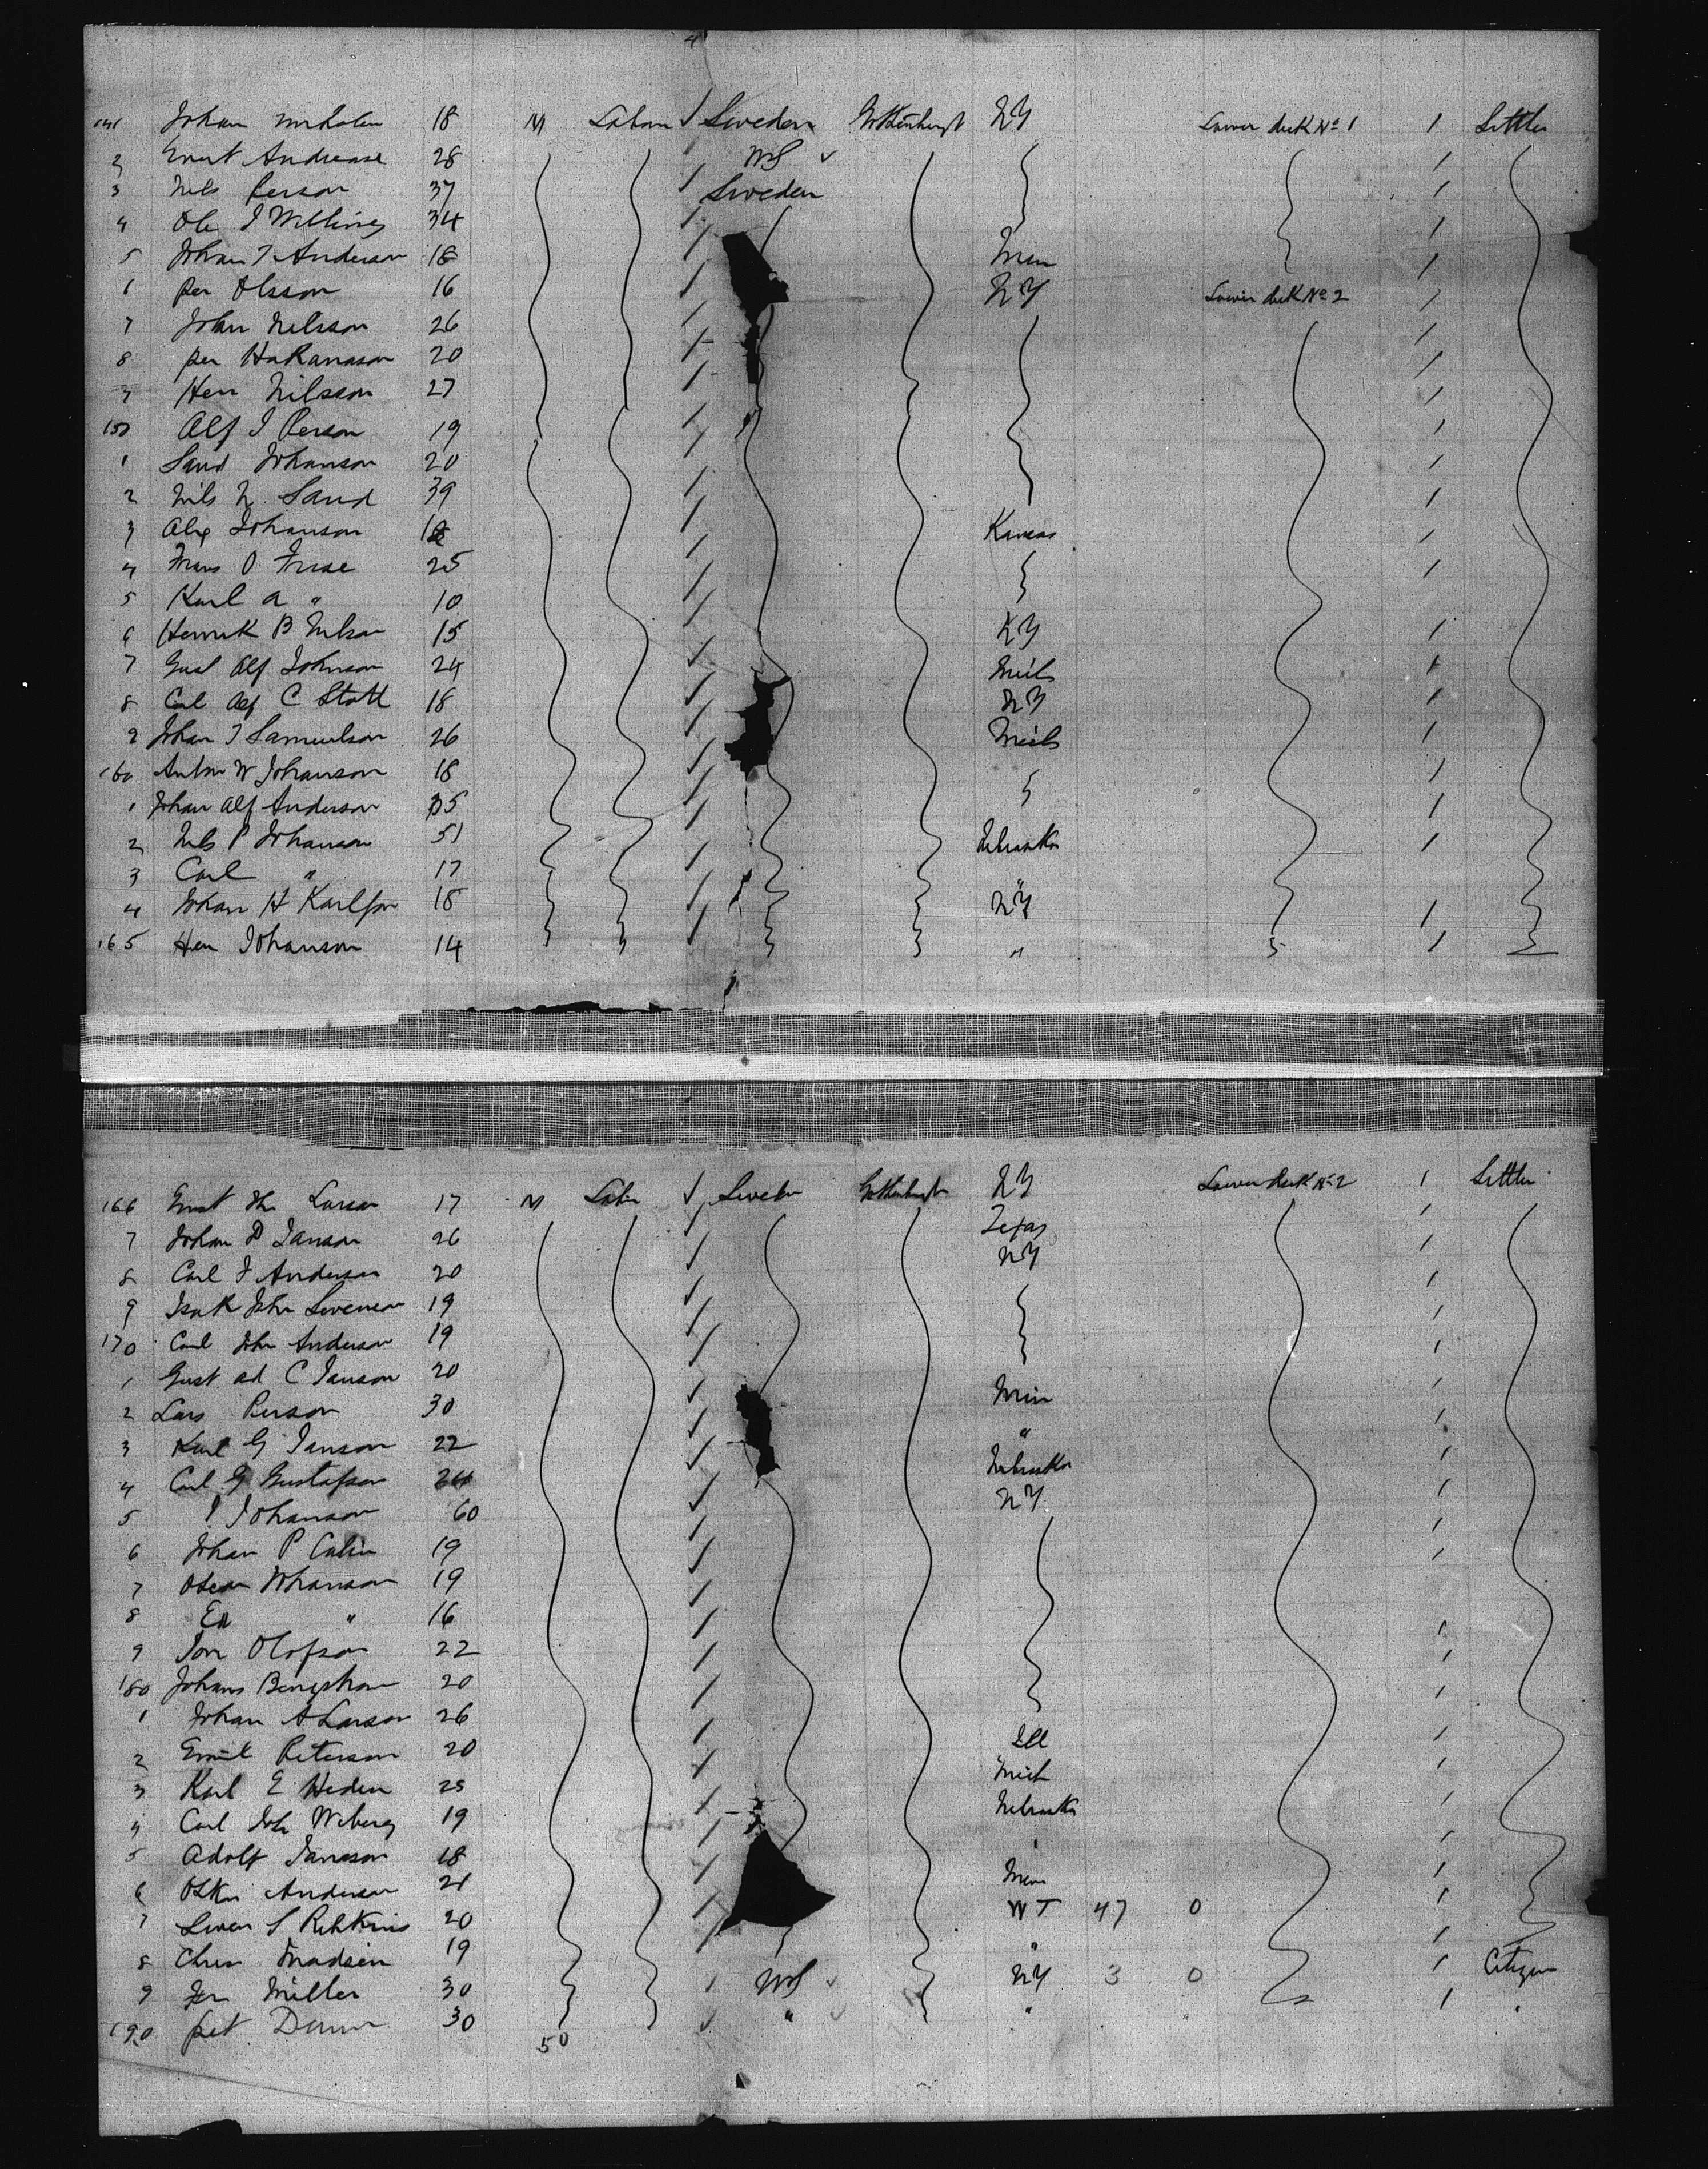 141 Johan 18 M Labour Sweden Gothenburgh NY Lower deck No 1 1 Settler
2 Evert Andrease 28 US
3 Nils Person 37 Sweden
4 Ole J 34
5 Johan F Anderson 18 Minn
6 Per Olsson 16 NY Lower deck No 2
7 John Nilsson 26
8 Per Hakanason 20
9 Hen Nilsson 27
150 Alf J Person 19
1 Sand Johanson 20
2 Nils N Sand 39
3 Alex Johanson 18 Kansas
4 Frans O 25
5 Karl A " 10
6 Henrik B Nelson 15 NY
7 Gust Alf Johnson 24 Mich
8 Carl Alf C Stott 18 NY
9 Johan F Samuelson 26 Mich
160 Anton W Johanson 18
1 Johan Alf Anderson 35
2 Nils P Johanson 51 Nebraska
3 Carl " 17 "
4 Johan H Karlson 18 NY
165 Hen Johanson 14 "
166 Ernst Larson 17 M Labor Sweden Gothenburgh NY Lower deck No 2 1 Settler
7 Johan P Janson 26 Texas
8 Carl J Anderson 20 NY
9 Isak John Swenson 19
170 Carl John Anderson 19
1 Gust Ad C Janson 20
2 Lars Person 30 Min
3 Karl G Janson 22 "
4 Carl G Gustafson 24 Nebraska
5 P Johanson 60 NY
6 Johan P 19
7 Oscar Johanson 19
8 " 16
9 Olofson 22
180 Johans 20
1 Johan A Larson 26
2 Emil Peterson 20 Ill
3 Karl E Heden 25 Mich
4 Carl Joh Wiberg 19 Nebraska
5 Adolf Janson 18 "
6 Anderson 21 Minn
7 Swen S 20 WT 47 0
8 Chris Madsen 19 "
9 Miller 30 US NY 3 0 1 Citizen
190 Pet 30 " " 1 "
50